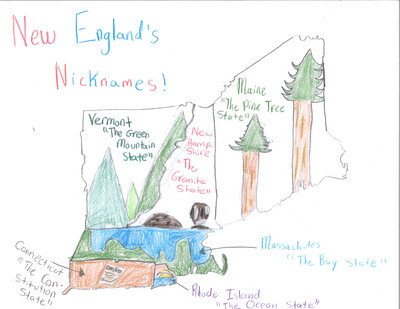 New England's
Nicknames!
Maine
"The Pine Tree
State"
Vermont
"The Green
Mountain
State"
New
Hamp
Shire
"The
Granite
State"
Massachutes
"The Bay State"
Connecticut
"The Con-
stitution
State"
Rhode Island
"The Ocean State"